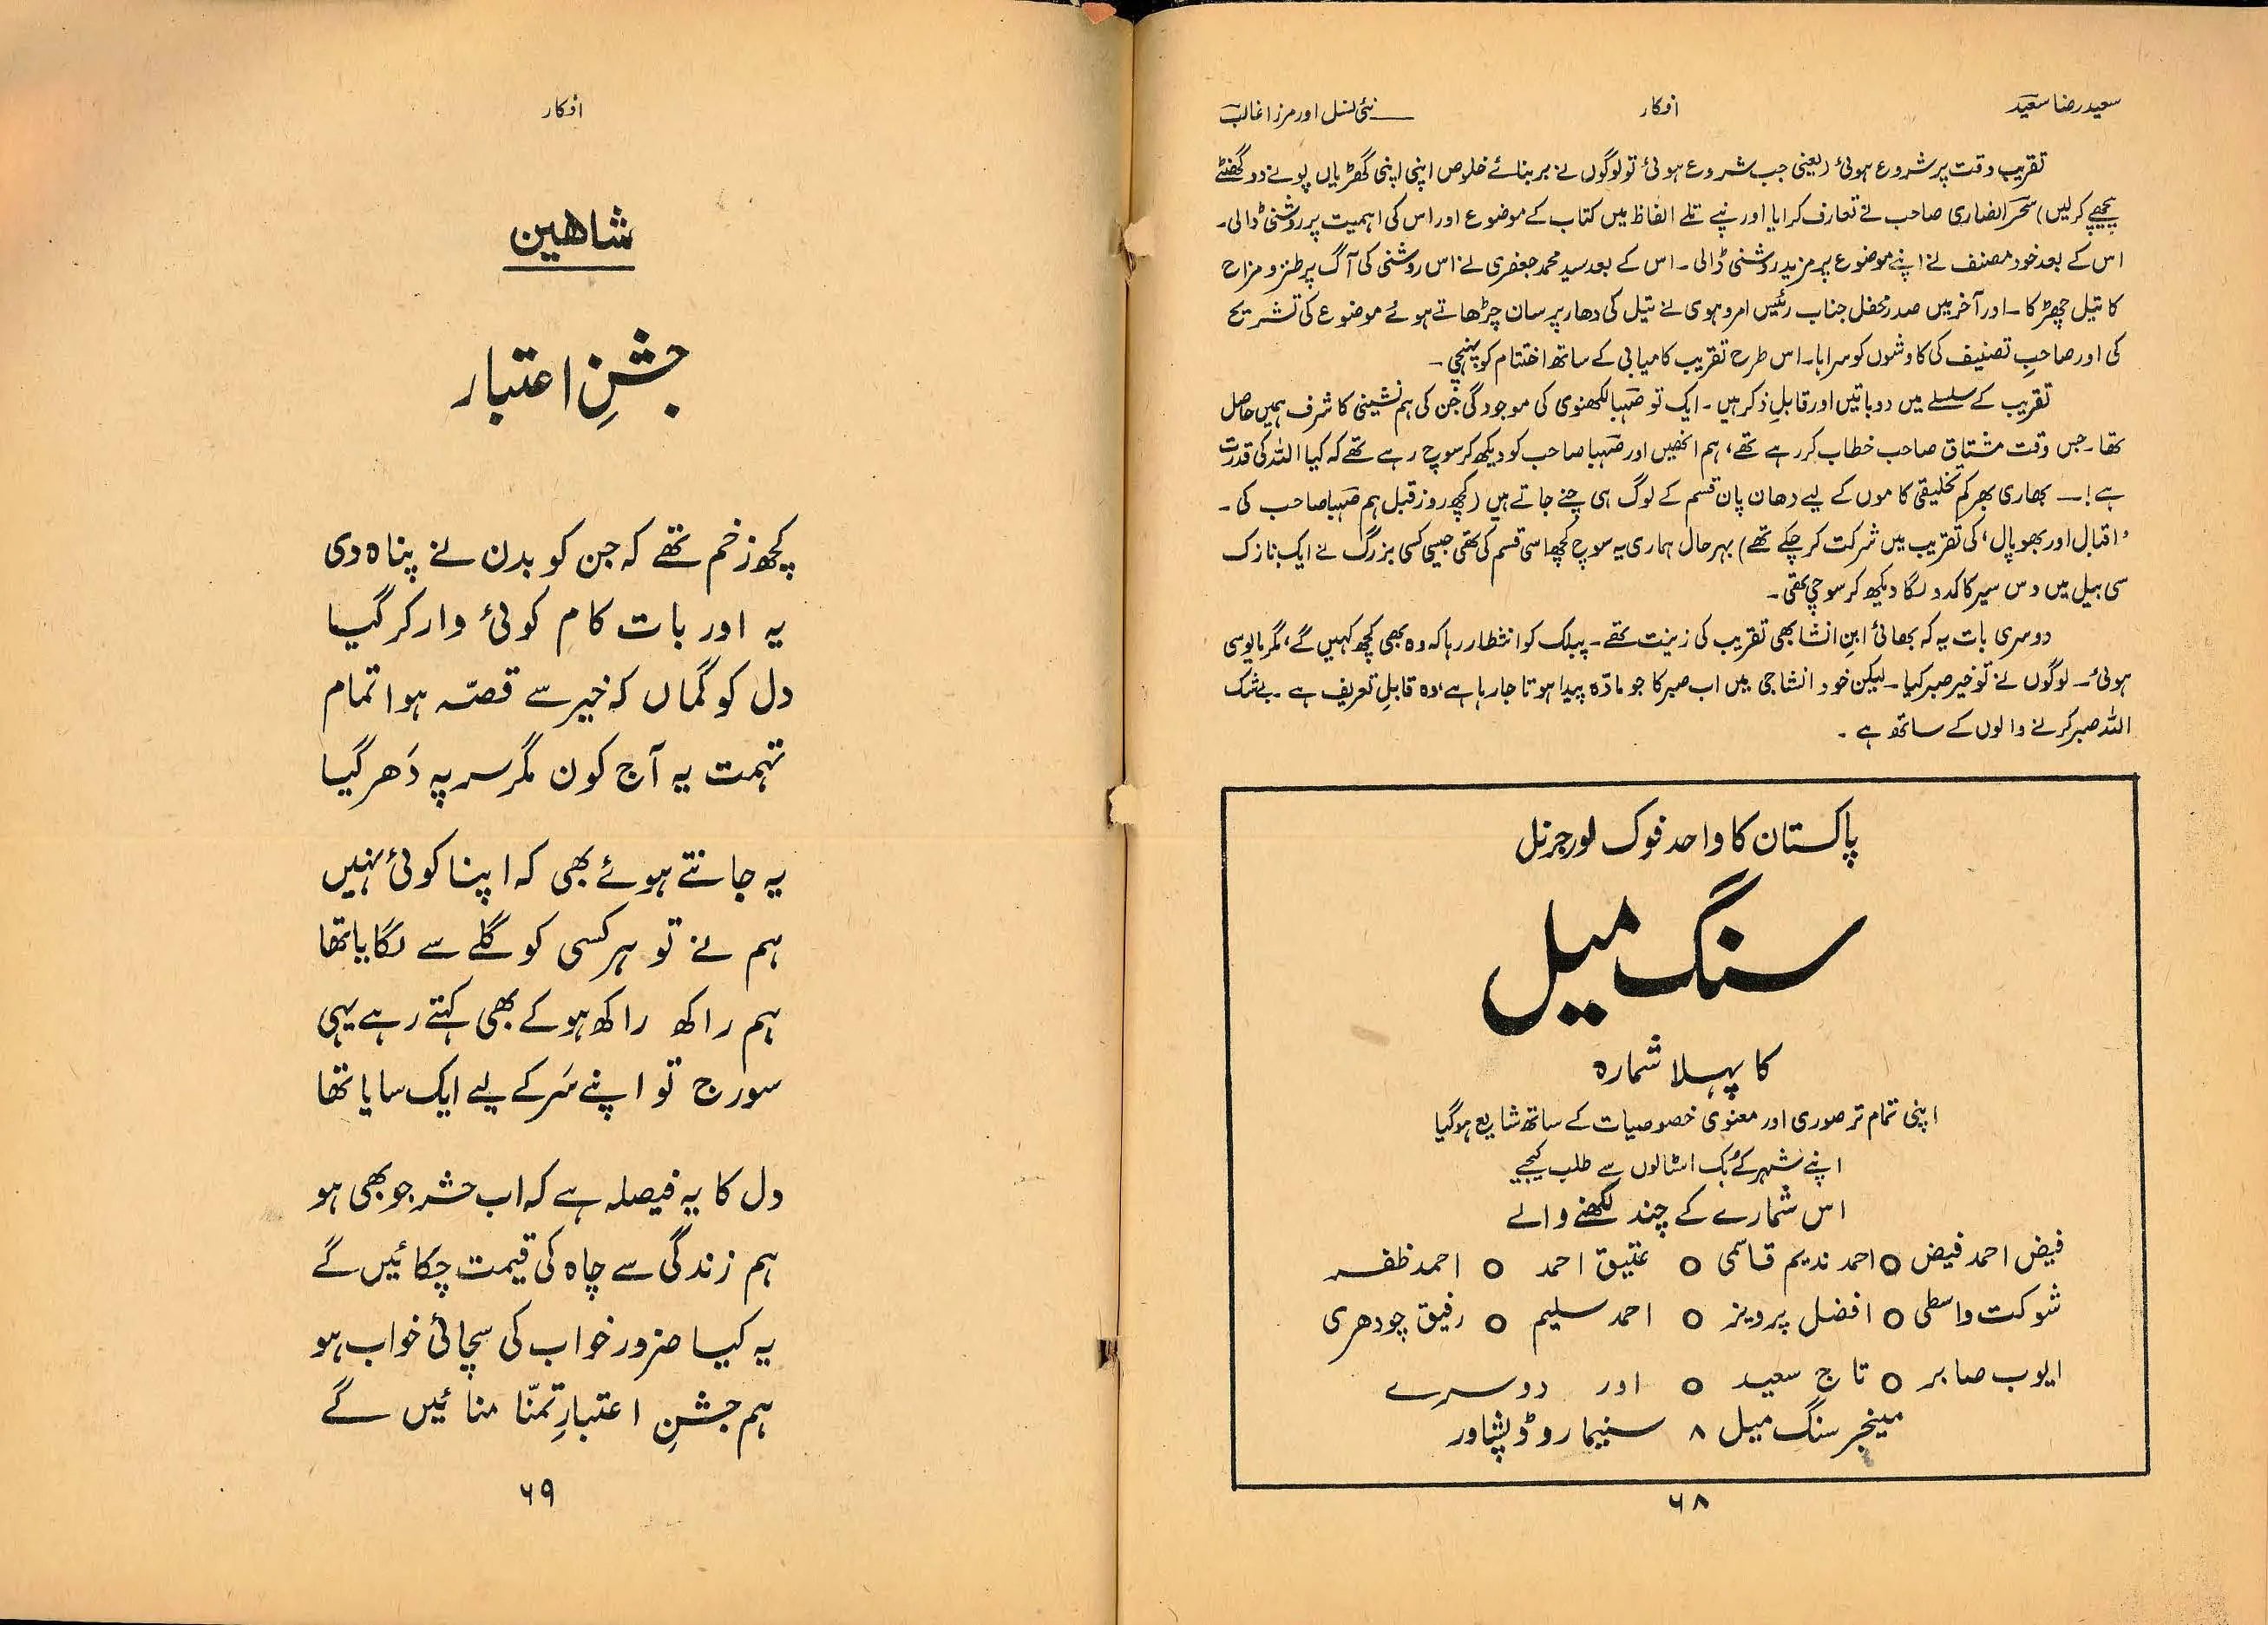 سعید رضا سعید
افکار
نئی نسل اور مرزا غالب
تقریب وقت پر شروع ہوئی (یعنی جب شروع ہوئی تو لوگوں نے بر بنائے خلوص اپنی اپنی گھڑیاں پونے دو گھنٹے
پیچھے کرلیں) سحر انصاری صاحب نے تعارف کرایا اور نپے تلے الفاظ میں کتاب کے موضوع اور اس کی اہمیت پر روشنی ڈالی۔
اس کے بعد خود مصنف نے اپنے موضوع پر مزید روشنی ڈالی۔ اس کے بعد سید محمد جعفری نے اس روشنی کی آگ پر طنز و مزاح
کا تیل چھڑکا۔ اور آخر میں صدر محفل جناب رئیس امروہوی نے تیل کی دھار پر سان چڑھاتے ہوئے موضوع کی تشریح
کی اور صاحبِ تصنیف کی کاوشوں کو سراہا۔ اس طرح تقریب کامیابی کے ساتھ اختتام کو پہنچی۔
تقریب کے سلسلے میں دو باتیں اور قابلِ ذکر ہیں۔ ایک تو صہبا لکھنوی کی موجودگی جن کی ہم نشینی کا شرف ہمیں حاصل
تھا۔ جس وقت مشتاق صاحب خطاب کر رہے تھے، ہم انھیں اور صہبا صاحب کو دیکھ کر سوچ رہے تھے کہ کیا اللہ کی قدرت
ہے!۔ بھاری بھرکم تخلیقی کاموں کے لیے دھان پان قسم کے لوگ ہی چنے جاتے ہیں (کچھ روز قبل ہم صہبا صاحب کی۔
'اقبال اور بھوپال' کی تقریب میں شرکت کر چکے تھے) بہر حال ہماری یہ سوچ کچھ اسی قسم کی تھی جیسی کسی بزرگ نے ایک نازک
سی بیل میں دس سیر کا کدو لگا دیکھ کر سوچی تھی۔
دوسری بات یہ کہ بھائی ابنِ انشا بھی تقریب کی زینت تھے۔ پبلک کو انتظار رہا کہ وہ بھی کچھ کہیں گے، مگر مایوسی
ہوئی۔ لوگوں نے تو خیر صبر کیا۔ لیکن خود انشا جی میں اب صبر کا جو مادّہ پیدا ہوتا جا رہا ہے، وہ قابلِ تعریف ہے۔ بے شک
اللہ صبر کرنے والوں کے ساتھ ہے۔
پاکستان کا واحد فوک لور جرنل
سنگ میل
کا پہلا شمارہ
اپنی تمام تر صوری اور معنوی خصوصیات کے ساتھ شایع ہوگیا
اپنے شہر کے بُک اسٹالوں سے طلب کیجیے
اس شمارے کے چند لکھنے والے
فیض احمد فیض o احمد ندیم قاسمی o عتیق احمد o احمد ظفر
شوکت واسطی o افضل پرویز o احمد سلیم o رفیق چودھری
ایوب صابر o تاج سعید o اور دوسرے
مینجر سنگ میل ۸ سنیما روڈ پشاور
۶۸
افکار
شاھین
جشنِ اعتبار
کچھ زخم تھے کہ جن کو بدن نے پناہ دی
یہ اور بات کام کوئی وار کر گیا
دل کو گماں کہ خیر سے قصّہ ہوا تمام
تہمت یہ آج کون مگر سر پہ دَھر گیا
یہ جانتے ہوئے بھی کہ اپنا کوئی نہیں
ہم نے تو ہر کسی کو گلے سے لگایا تھا
ہم راکھ راکھ ہو کے بھی کہتے رہے یہی
سورج تو اپنے سَر کے لیے ایک سایا تھا
دل کا یہ فیصلہ ہے کہ اب حشر جو بھی ہو
ہم زندگی سے چاہ کی قیمت چکائیں گے
یہ کیا ضرور خواب کی سچائی خواب ہو
ہم جشنِ اعتبارِ تمنّا منائیں گے
۶۹